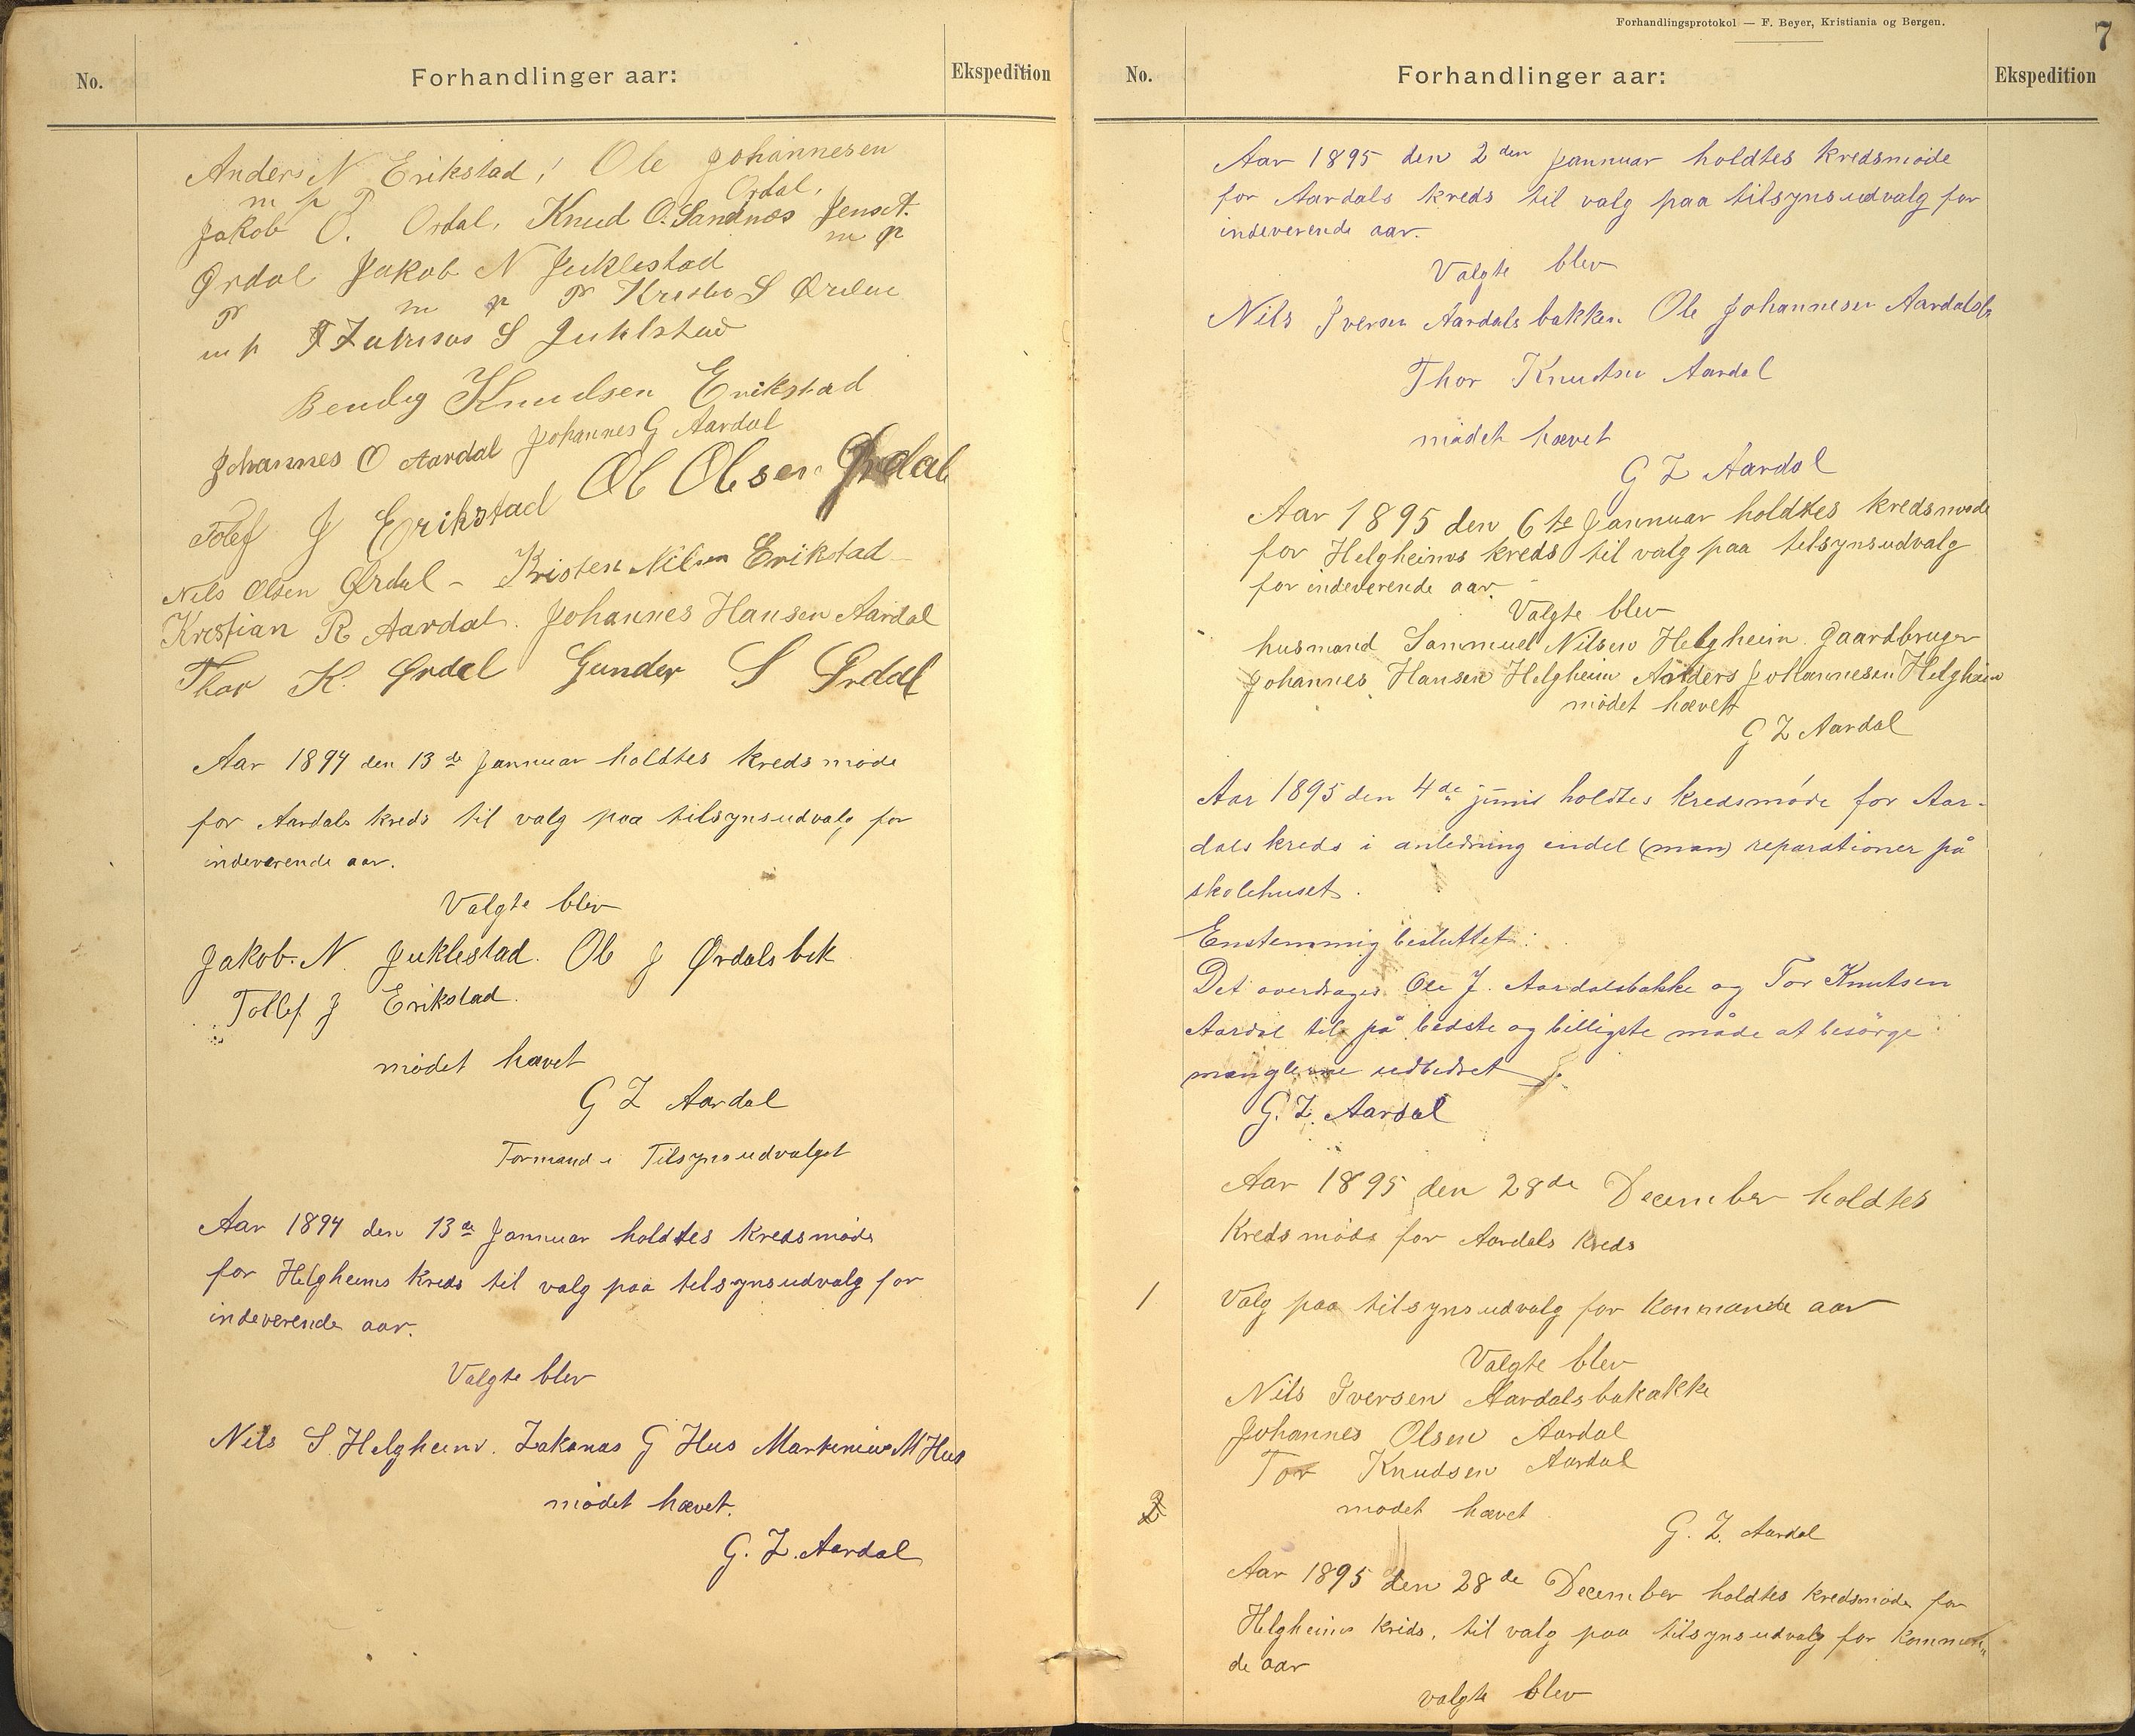 No.
Forhandlinger aar:
Ekspedition
Anders N Erikstad, Ole Johannesen
m p Ordal,
Jakob O. Ordal, Knud O. Sandnes Jens T.
m p
Ørdal Jakob N Juklestad
m p S Ørdal
m p S Juklstad
Bendig Knudsen Erikstad
Johannes O Aardal Johannes G Aardal
Ole Olsen Ørdal
Tolef J Erikstad
Nils Olsen Ørdal - Kristen Nilsen Erikstad
Kristian R Aardal. Johannes Hansen Aardal
Thor K. Ørdal Gunder S Ørdal
Aar 1894 den 13de Januar holdtes kredsmøde
for Aardals kreds til valg paa tilsynsudvalg for
indeverende aar.
Valgte blev
Jakob. N. Juklestad. Ole J Ørdalsbek
Tollef J Erikstad.
mødet hævet
G Z Aardal
Formand i Tilsynsudvalget
Aar 1894 den 13de Januar holdtes kredsmøde
for Helgheims kreds til valg paa tilsynsudvalg for
indeverende aar.
Valgte blev
Nils S. Helgheim. Zakarias G Hus Martinius M Hus
mødet hævet.
G. Z. Aardal
Forhandlingsprotokol — F. Beyer, Kristiania og Bergen.
7
No.
Forhandlinger aar:
Ekspedition
Aar 1895 den 2den Januar holdtes kredsmøde
for Aardals kreds til valg paa tilsynsudvalg for
indeverende aar.
Valgte blev
Nils Iversen Aardalsbakken Ole Johannesen Aardalsb
Thor Knudsen Aardal
mødet hævet
G Z Aardal
Aar 1895 den 6te Januar holdtes kredsmøde
for Helgheims kreds til valg paa tilsynsudvalg
for indeverende aar.
Valgte blev
husmand Sammuel Nilsen Helgheim Gaardbruger
Johannes Hansen Helgheim Anders Johannesen Helgheim
mødet hævet
G Z Aardal
Aar 1895 den 4de juni holdtes kredsmøde for Aar-
dals kreds i anledning endel (man) reparationer på
skolehuset.
Enstemmig besluttet:
Det overdrages Ole J. Aardalsbakke og Tor Knutsen
Aardal til på bedste og billigste måde at besörge
manglerne udbedret
G. Z. Aardal
Aar 1895 den 28de December holdtes
Kredsmøde for Aardals kreds
1 Valg paa tilsynsudvalg for kommande aar
Valgte blev
Nils Iversen Aardalsbakakke
Johannes Olsen Aardal
Tor Knudsen Aardal
2 mødet hævet
G. Z. Aardal
Aar 1895 den 28de December holdtes kredsmøde for
Helgheims kreds, til valg paa tilsynsudvalg for kommen-
de aar
valgte blev